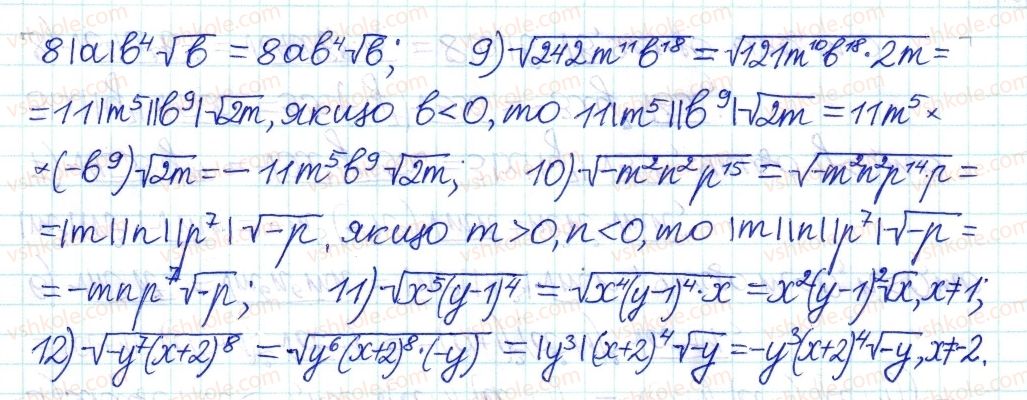 8|a|b⁴√b = 8ab⁴√b; 9) √(242m¹¹b¹⁸) = √(121m¹⁰b¹⁸·2m) =
= 11|m⁵||b⁹|√(2m), якщо b<0, то 11|m⁵||b⁹|√(2m) = 11m⁵ ×
×(-b⁹)√(2m) = -11m⁵b⁹√(2m); 10) √(-m²n²p¹⁵) = √(-m²n²p¹⁴·p) =
= |m||n||p⁷|√(-p), якщо m>0, n<0, то |m||n||p⁷|√(-p) =
= -mnp⁷√(-p); 11) √(x⁵(y-1)⁴) = √(x⁴(y-1)⁴·x) = x²(y-1)²√x, x≠1;
12) √(-y⁷(x+2)⁸) = √(y⁶(x+2)⁸·(-y)) = |y³|(x+2)⁴√(-y) = -y³(x+2)⁴√(-y), x≠-2.